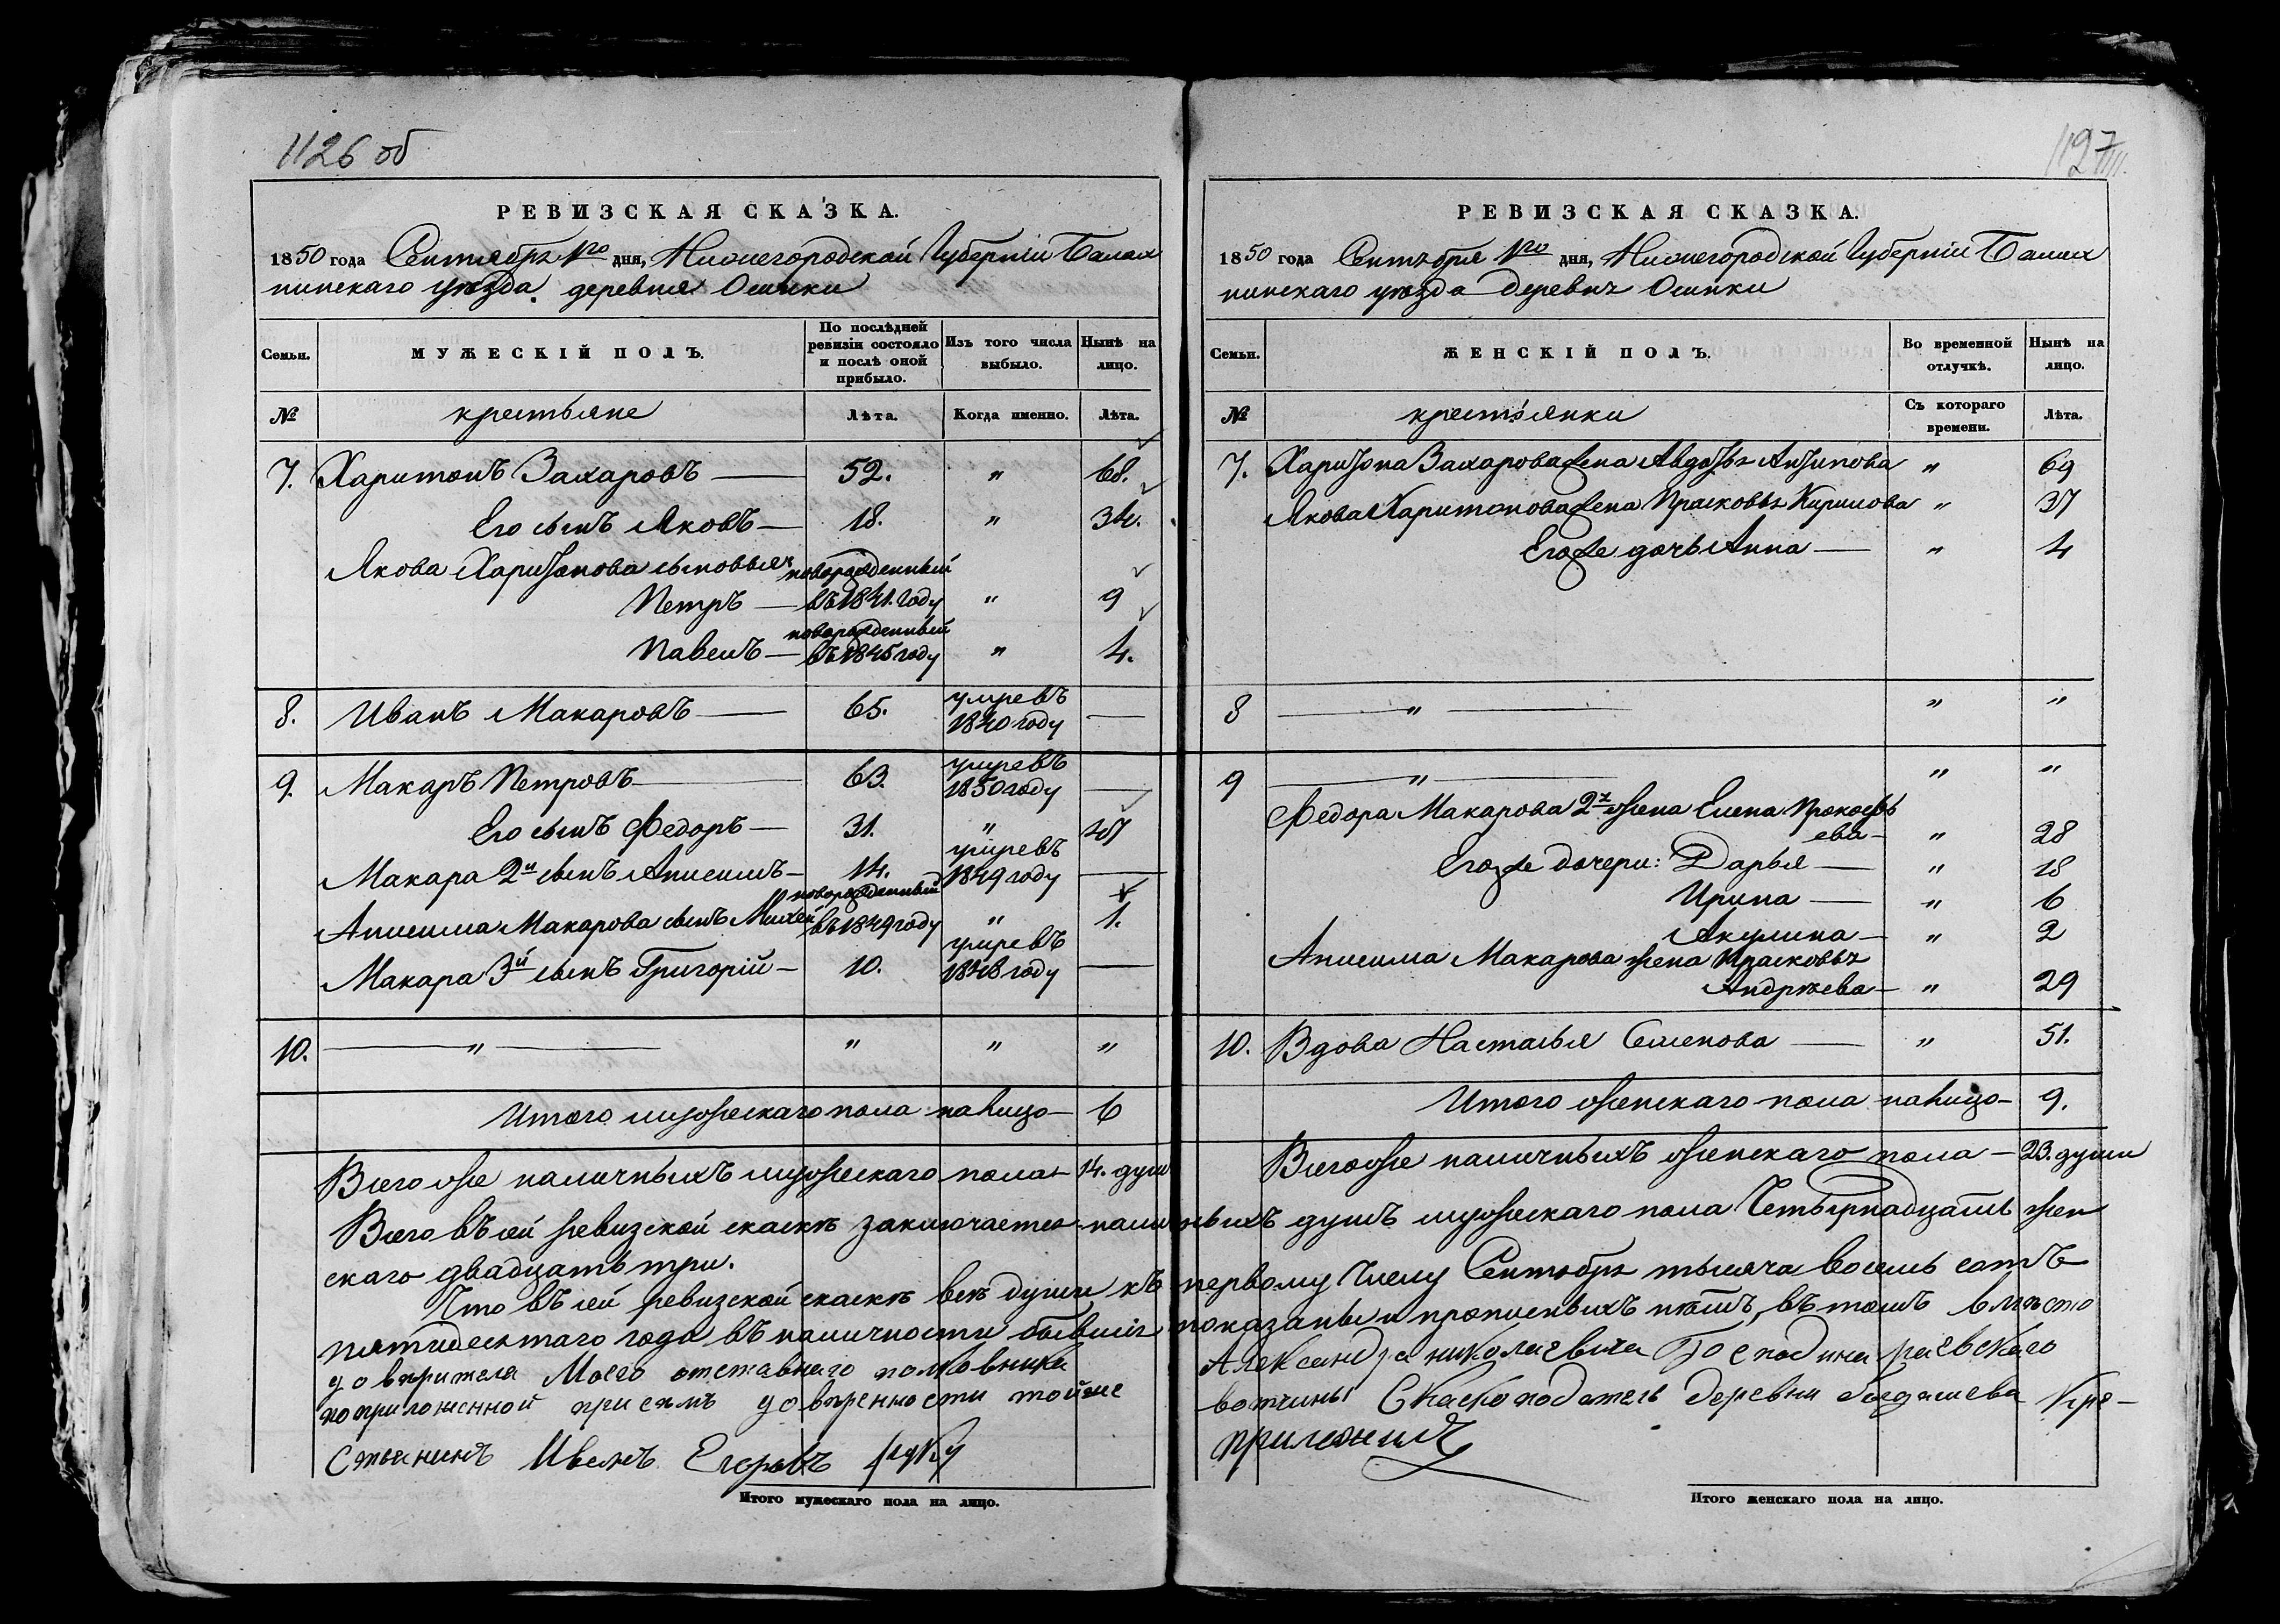 1126 об
РЕВИЗСКАЯ СКАЗКА.
1850 года Сентября 1го дня, Нижегородской Губерніи Балах
нинскаго уѣзда. деревня Осинки
Семьи.
МУЖЕСКІЙ ПОЛЪ.
По послѣдней ревизіи состояло и послѣ оной прибыло.
Изъ того числа выбыло.
Нынѣ на лицо.
№ крестьяне Лѣта. Когда именно. Лѣта.
7. Харитонъ Захаровъ — 52. " 68.
Его сынъ Яковъ — 18. " 34.
Якова Харитонова сыновья новорожденный
Петръ — въ 1841. году " 9
новорожденный
Павелъ — въ 1845 году " 4.
8. Иванъ Макаровъ — 65. умревъ 1840 году —
9. Макаръ Петровъ — 63. умревъ 1850 году —
Его сынъ Федоръ — 31. " 47
Макара 2й сынъ Анисимъ — 14. умревъ 1849 году —
Анисима Макарова сынъ Михей новорожденный въ 1849 году " 1.
Макара 3й сынъ Григорій — 10. умревъ 1848 году —
10. — " — " " "
Итого мужескаго пола на лицо — 6
Всегоже наличныхъ мужескаго пола — 14. душ
1127
РЕВИЗСКАЯ СКАЗКА.
1850 года Сентября 1го дня, Нижегородской Губерніи Балах
нинскаго уѣзда деревня Осинки
Семьи.
ЖЕНСКІЙ ПОЛЪ.
Во временной отлучкѣ.
Нынѣ на лицо.
№ крестьянки Съ котораго времени. Лѣта.
7. Харитона Захарова жена Авдотья Антипова " 69
Якова Харитонова жена Прасковья Кирилова " 37
Егоже дочь Анна — " 4
8 — " — " "
9 — " — " "
Федора Макарова 2я жена Елена Прокофь
ева — " 28
Егоже дочери: Дарья — " 18
Ирина — " 6
Акулина — " 2
Анисима Макарова жена Прасковья
Андрѣева — " 29
10. Вдова Настасья Семенова — " 51.
Итого женскаго пола на лицо — 9.
Всегоже наличныхъ женскаго пола — 23. души
Всего въ сей ревизской скаскѣ заключается наличныхъ душъ мужескаго пола Четырнадцать жен
скаго двадцать три.
Что въ сей ревизской скаскѣ всѣ души къ первому Числу Сентября тысяча восемь сотъ
пятидесятаго года въ наличности бывшія показаны и прописныхъ нѣтъ, въ томъ вместо
довѣрителя Моего отставнаго полковника Александра николаевича Господина раевскаго
по приложенной при семъ довѣренности тойже вотчины Сказкоподатель деревни Кре-
стьянинъ Иванъ Егоровъ руку приложилъ
Итого мужескаго пола на лицо.
Итого женскаго пола на лицо.